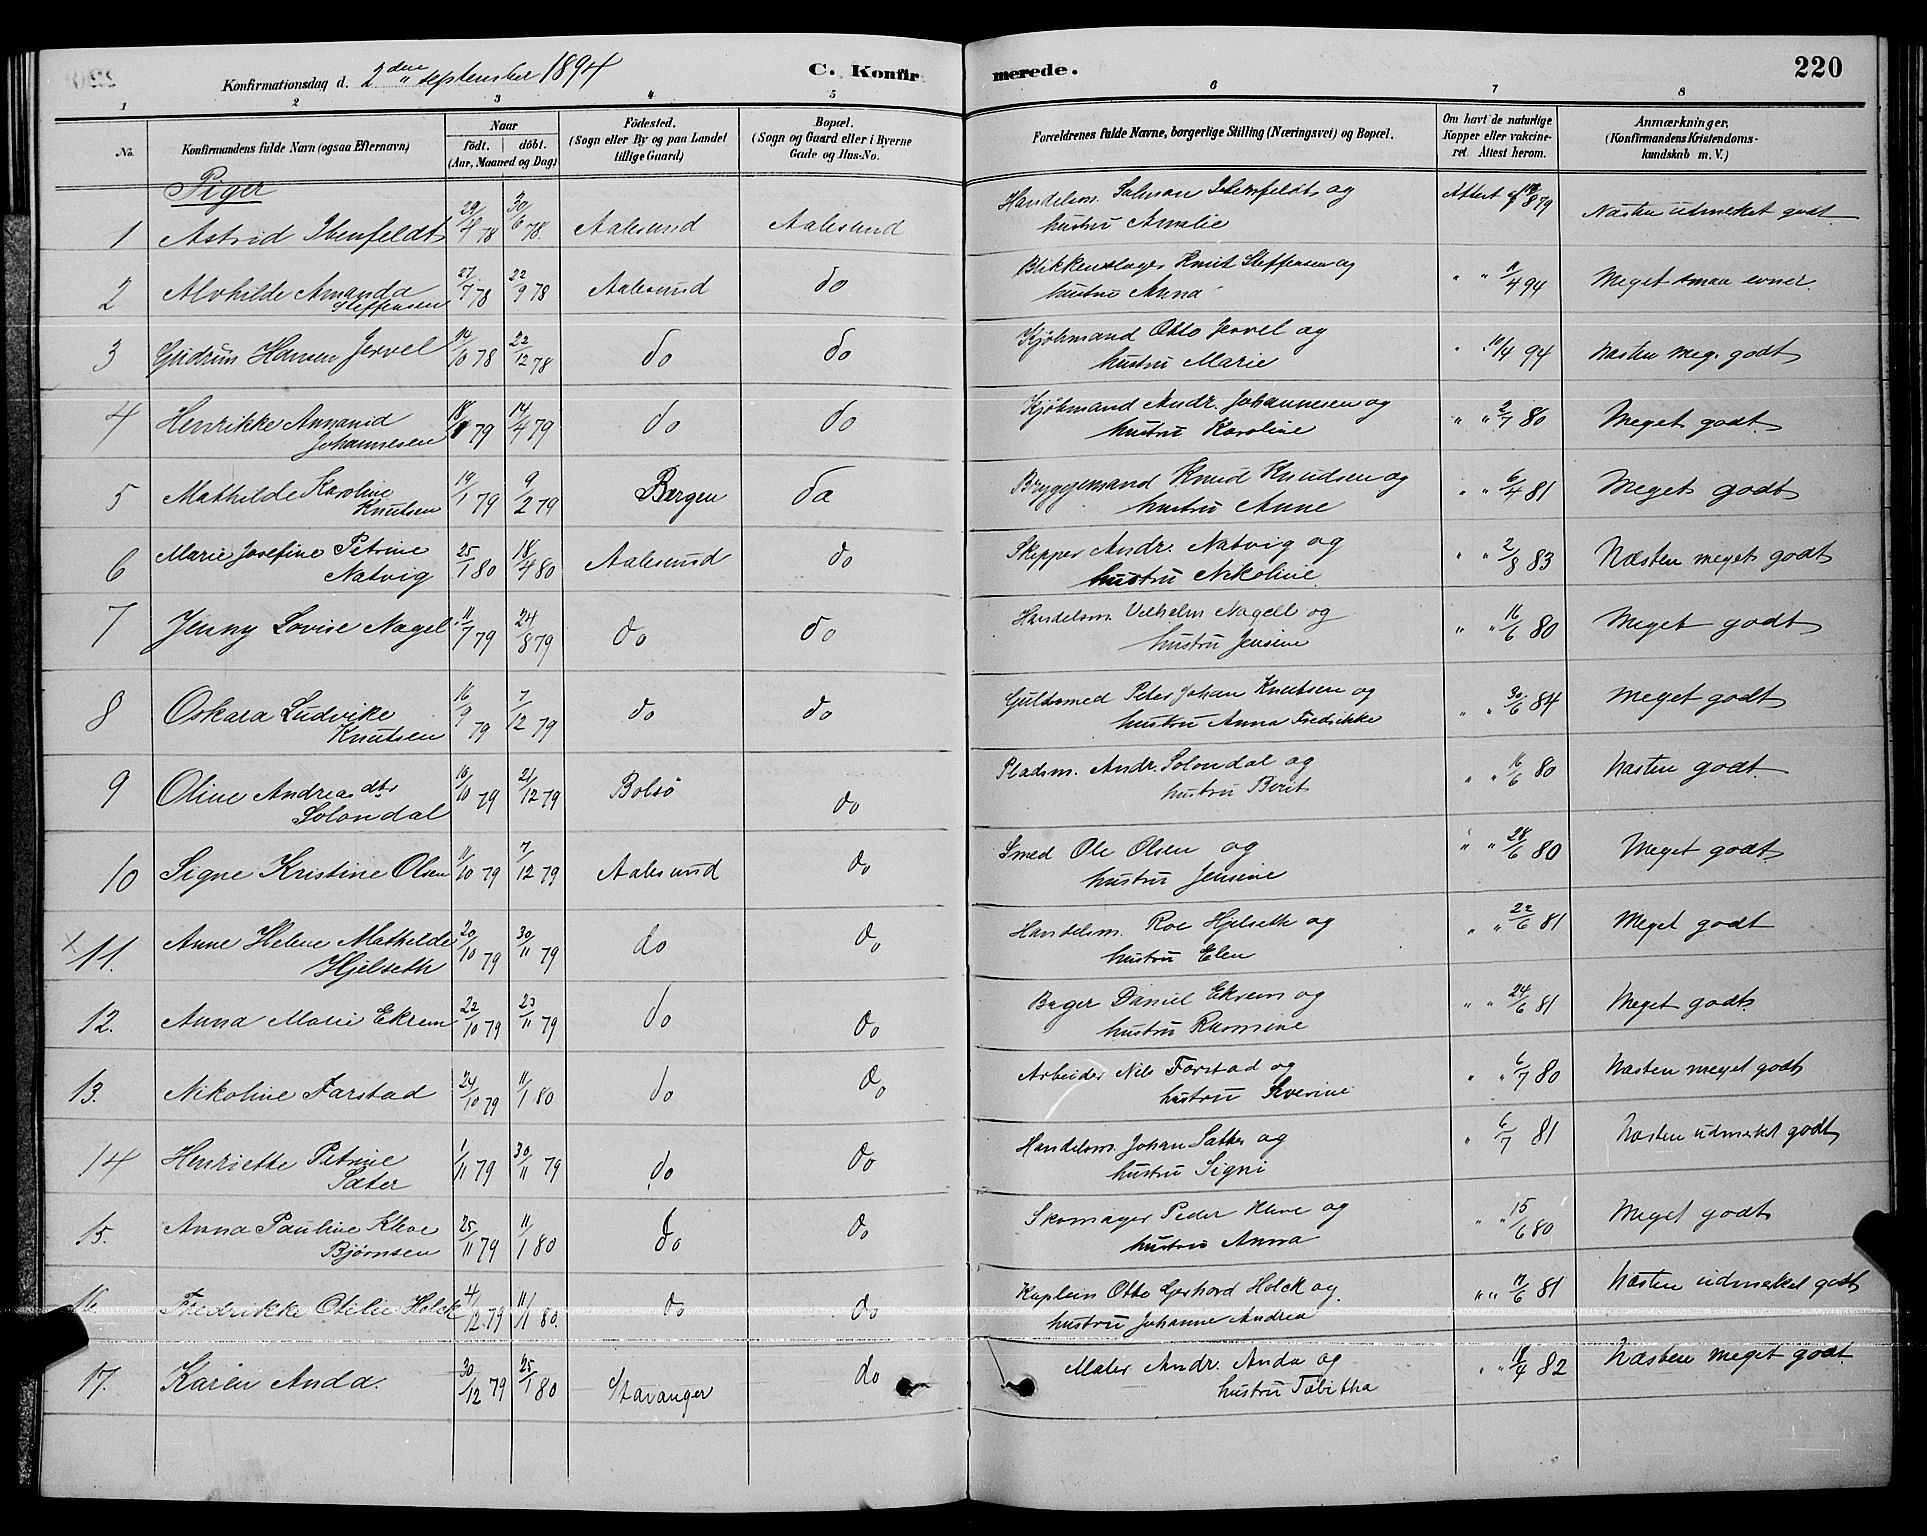 Konfirmationsdag d. 2den september 1894 C. Konfirmerede. 220
1 2 3 4 5 6 7 8
No. Konfirmandens fulde Navn (ogsaa Efternavn) Naar født. døbt. (Aar, Maaned og Dag) Fødested. (Sogn eller By og paa Landet tillige Gaard) Bopæl. (Sogn og Gaard eller i Byerne Gade og Hus-No. Forældrenes fulde Navne, borgerlige Stilling (Næringsvei) og Bopæl. Om havt de naturlige Kopper eller vakcineret. Attest herom. Anmærkninger. (Konfirmandens Kristendomskundskab m. V.)
Piger
1 Astrid Ibenfeldt 29/4 78 30/6 78. Aalesund Aalesund Handelsm. Salmon Ibenfeldt og
hustru Amalie Attest af 879 Næsten udmerket godt
2 Alvhilde Amanda
Steffensen 27/7 78 22/9 78 Aalesund do Blikkenslager Knut Steffensen og
hustru Anna " " 11/4 94 Meget smaa evner.
3 Gudrun Hansen Jervel 14/10 78 22/12 78 do do Kjøbmand Otto Jervel og
hustru Marie " " 10/4 94 Næsten meg. godt
4 Henrikke Annanid
Johannesen 18/1 79 14/4 79 do do Kjøbmand Andr. Johannesen og
hustru Karoline " " 2/7 80 Meget godt
5 Mathilde Karoline
Knutsen 19/1 79 9/2 79 Bergen do Bryggemand Knud Knudsen og
hustru Anne " " 6/4 81 Meget godt
6 Marie Josefine Petrine
Natvig 25/1 80 18/4 80 Aalesund do Skipper Andr. Natvig og
hustru Nikoline " " 2/8 83 Næsten meget godt
7 Jenny Lovise Nagel 11/7 79 24/8 79 do do Handelsm. Vilhelm Nagell og
hustru Jensine " " 16/6 80 Meget godt
8 Oskara Ludvike
Knutsen 16/9 79 7/12 79 do do Guldsmed Peter Johan Knutsen og
hustru Anna Fredrikke " " 30/6 84 Meget godt
9 Oline Andreasdtr
Solondal 16/10 79 21/12 79 Bolsø do Pladsm. Andr. Solondal og
hustru Berit " " 16/6 80 Næsten godt.
10 Signe Kristine Olsen 11/10 79 7/12 79 Aalesund do Smed Ole Olsen og
hustru Jensine " " 28/6 80 Meget godt
11. Anne Helene Mathilde
Hjelseth 20/10 79 30/11 79 do do Handelsm. Roe Hjelseth og
hustru Elen " " 22/6 81 Meget godt
12. Anna Marie Ekrem 22/10 79 23/11 79 do do Bager Daniel Ekrem og
hustru Rasmine " " 24/6 81 Meget godt
13. Nikoline Farstad 24/10 79 11/1 80 do do Arbeider Nils Farstad og
hustru Severine " " 6/7 80 Næsten meget godt
14 Henriette Petrine
Sæter 1/11 79 30/11 79 do do Handelsm. Johan Sæther og
hustru Signi " 6/7 81 Næsten udmerket godt
15. Anna Pauline Kleve
Bjørnsen 25/11 79 11/1 80 do do Skomager Peder Kleve og
hustru Anna " " 15/6 80 Meget godt
16. Fredrikke Otilie Holck 4/12 79 11/1 80. do do Kaptein Otto Gerhard Holck og
hustru Johanne Andrea " " 17/6 81 Næsten udmerket godt
17. Karen Anda. 30/12 79 25/1 80 Stavanger do Maler Andr. Anda og
hustru Tabitha " " 18/4 82 Næsten meget godt.